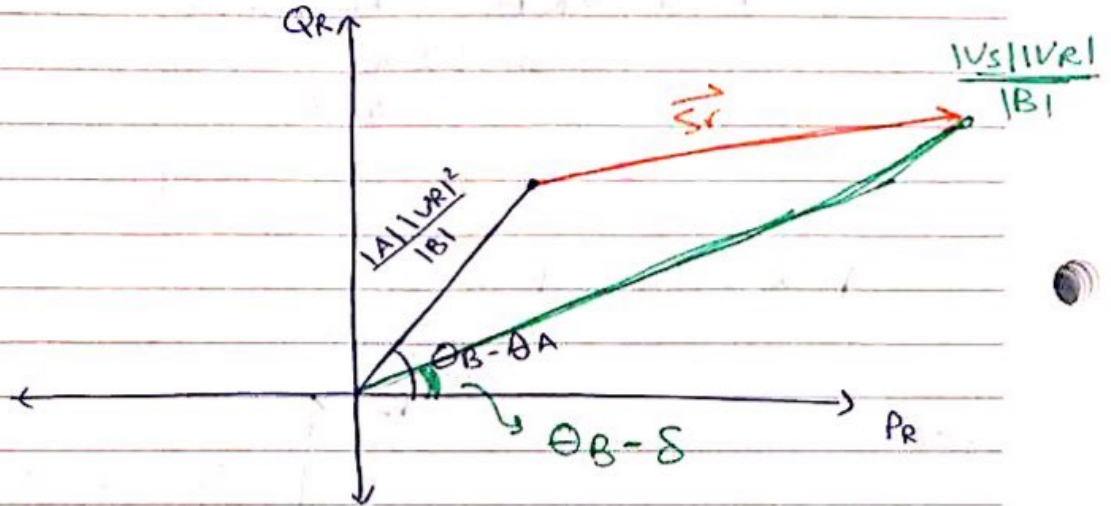 QR
|VS||VR|
|B|
Sr
|A||VR|²
|B|
θB-θA
PR
θB-δ